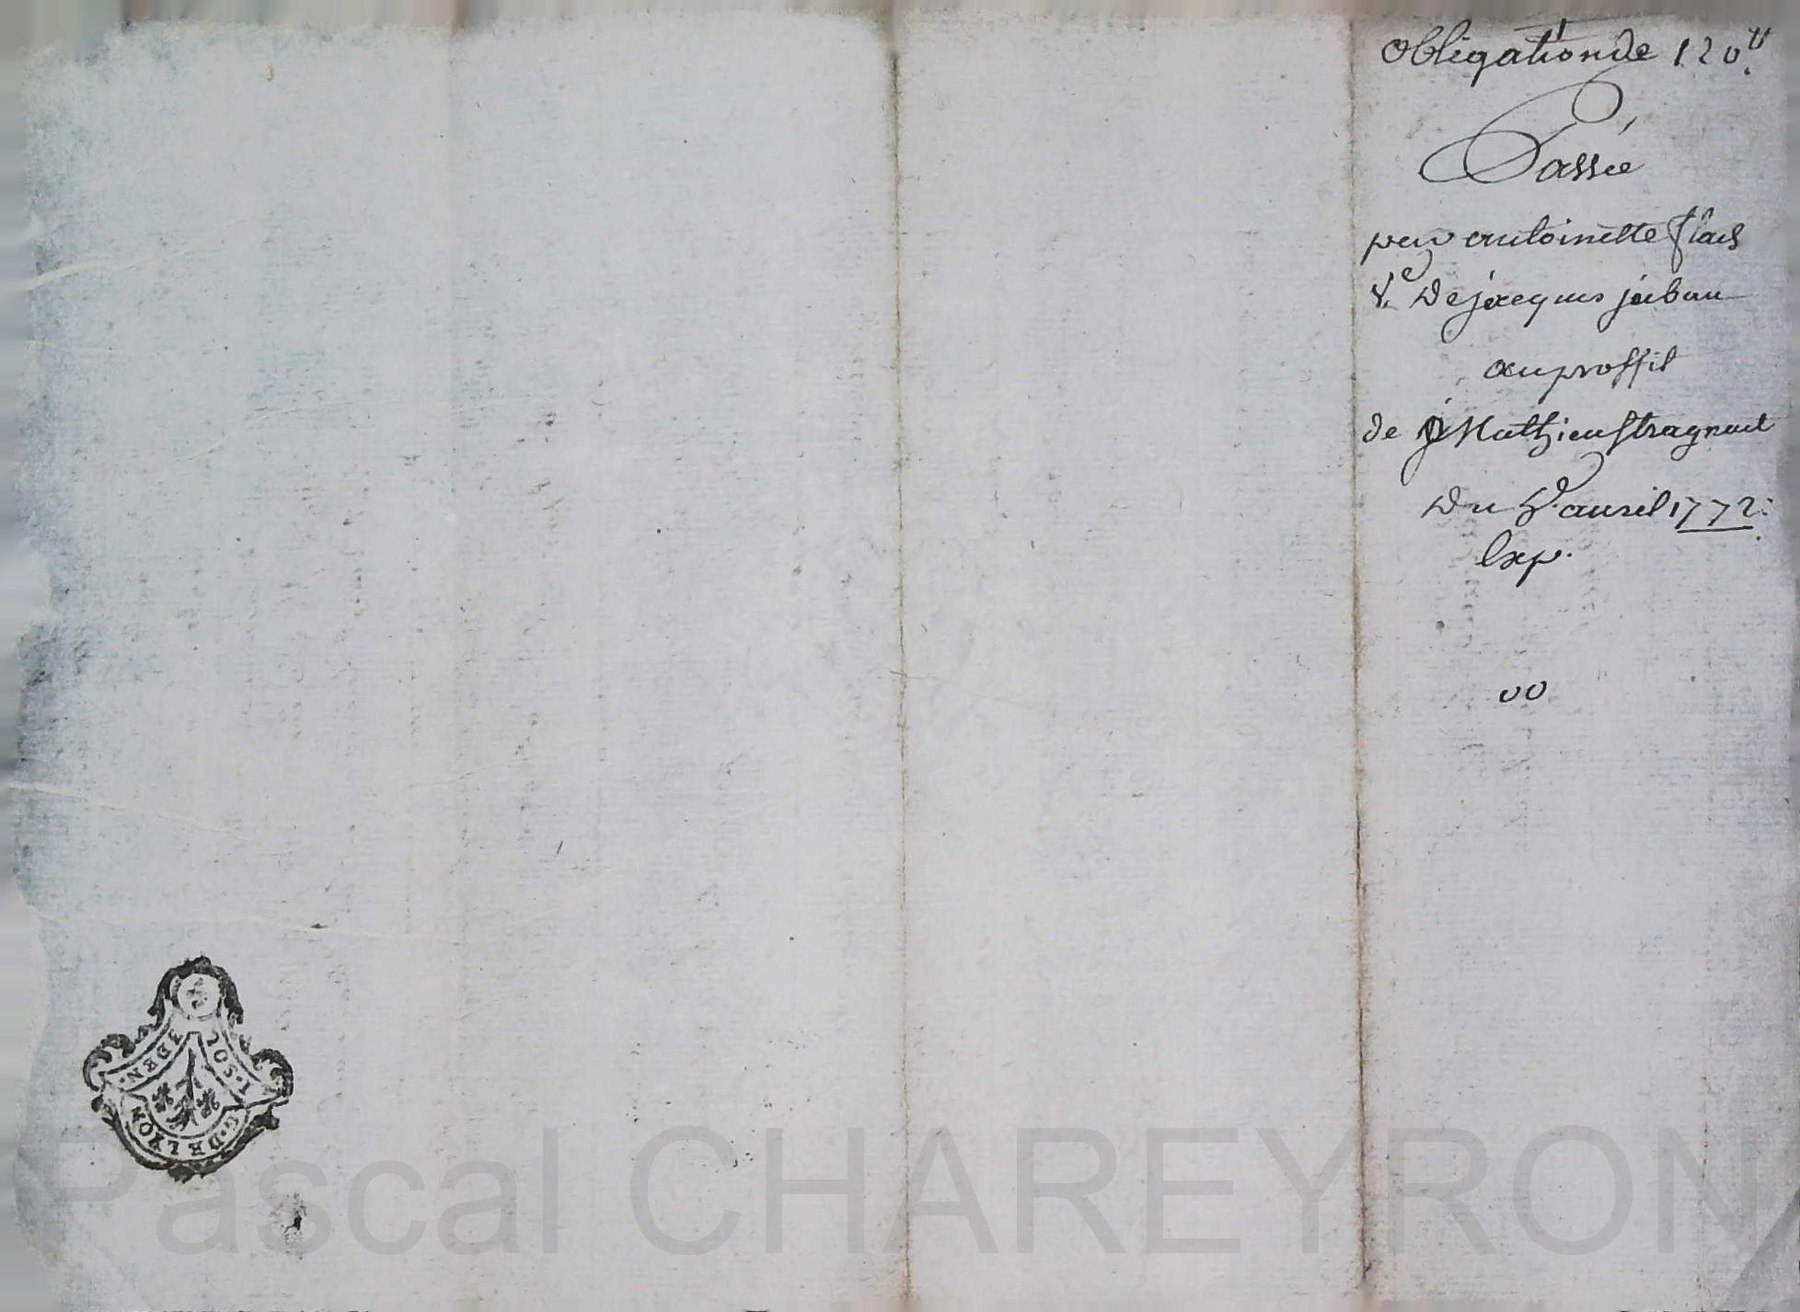 obligation de 120ᵗᵗ
Passée
par antoinette flach
Vᵉ de jacques jaban
au proffit
de Mathieu stragnat
du avril 1772.
Exp.
00
JOS. I.
3 DEN.
G. DE LYON
Pascal CHAREYRON